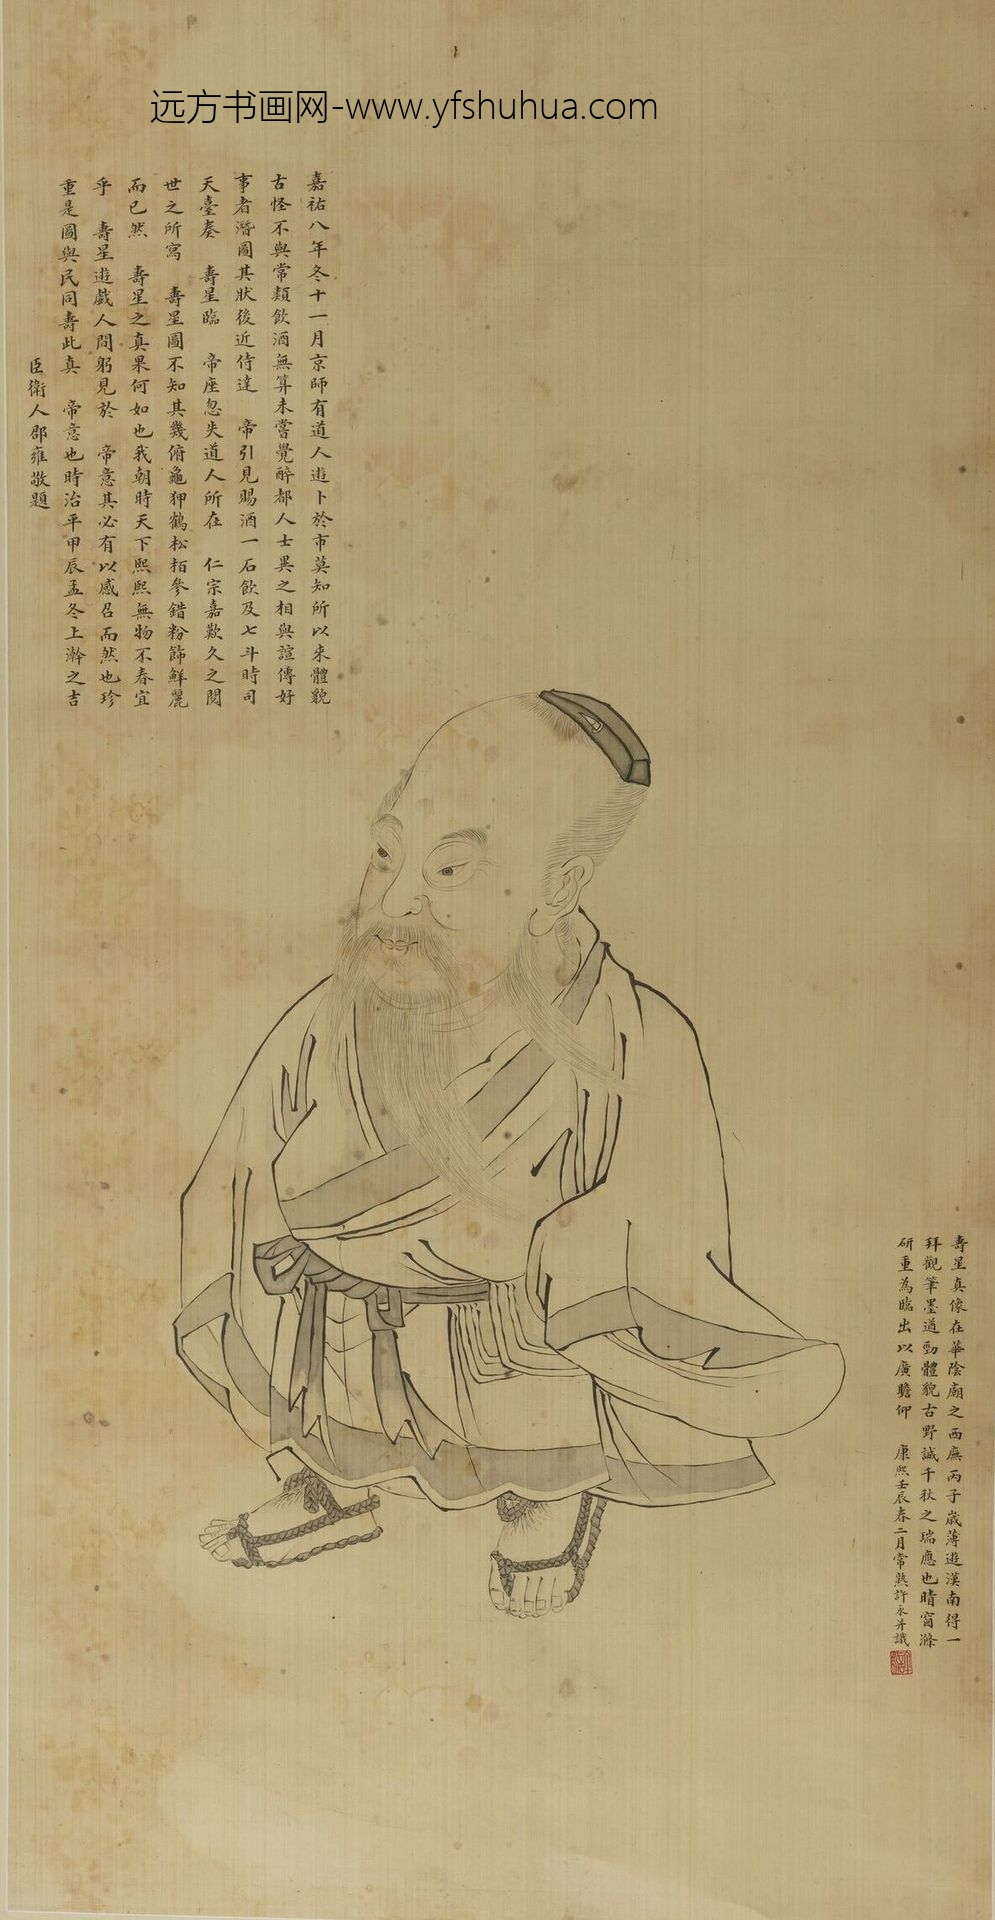 远方书画网-www.yfshuhua.com
嘉祐八年冬十一月京師有道人遊卜於市莫知所以来體貌
古怪不與常類飲酒無算未嘗覺醉都人士異之相與諠傳好
事者潛圖其狀後近侍達 帝引見賜酒一石飲及七斗時司
天臺奏 壽星臨 帝座忽失道人所在 仁宗嘉歎久之閱
世之所寫 壽星圖不知其幾俯龜狎鶴松栢參錯粉飾鮮麗
而已然 壽星之真果何如也我朝時天下熙熙無物不春宜
乎 壽星遊戲人間躬見於 帝意其必有以感召而然也珍
重是圖與民同壽此真 帝意也時治平甲辰孟冬上澣之吉
臣衛人邵雍敬題
壽星真像在華陰廟之西廡丙子歲薄遊漢南得一
拜觀筆墨遒勁體貌古野誠千秋之瑞應也晴窗滌
研重為臨出以廣瞻仰 康熙壬辰春二月常熟許永并識